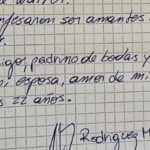 confesaron ser amantes
migo, padrino de bodas y
mi esposa, amor de mi
s 22 años.
Rodriguez M